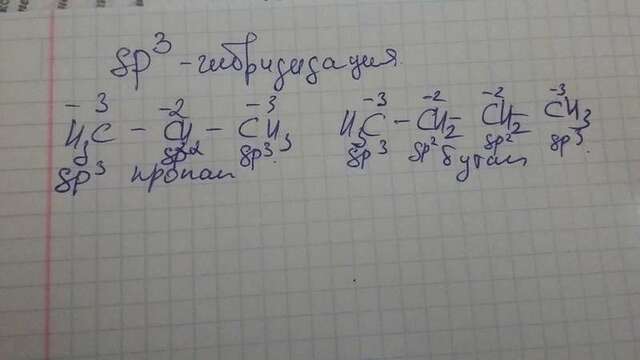 sp³ - гибридизация
-3 -2 -3 -3 -2 -2 -3
H₃C - CH - CH₃ H₃C - CH₂ - CH₂ - CH₃
sp³ sp² sp³ sp³ sp² sp² sp³
пропан бутан